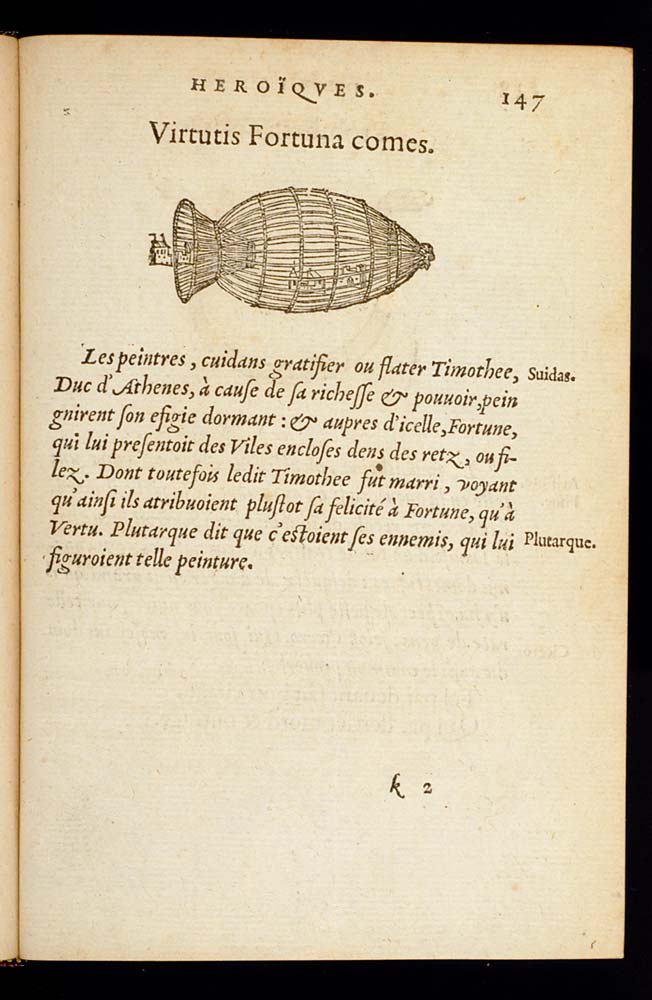 HEROÏQVES.
147
Virtutis Fortuna comes.
Les peintres, cuidans gratifier ou flater Timothee, Suidas.
Duc d'Athenes, à cauſe de ſa richeſſe & pouuoir, pein
gnirent ſon efigie dormant : & aupres d'icelle, Fortune,
qui lui preſentoit des Viles encloſes dens des retz, ou fi-
lez. Dont toutefois ledit Timothee fut marri, voyant
qu'ainſi ils atribuoient pluſtot ſa felicité à Fortune, qu'à
Vertu. Plutarque dit que c'eſtoient ſes ennemis, qui lui Plutarque.
figuroient telle peinture.
k 2